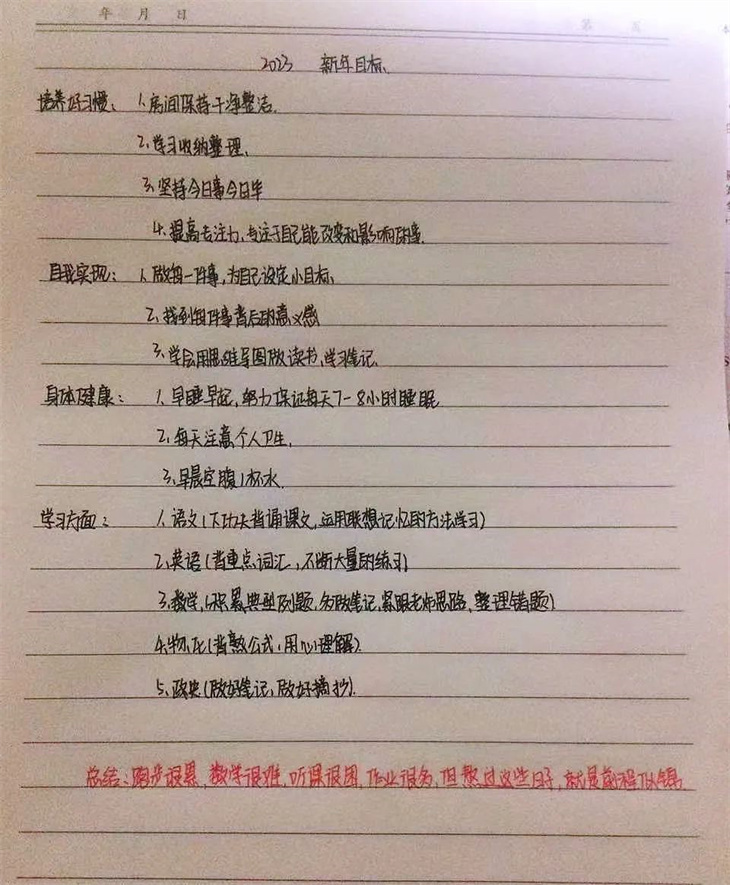 年 月 日
第 页
2023 新年目标
培养好习惯: 1.房间保持干净整洁.
2.学习收纳整理.
3.坚持今日事今日毕
4.提高专注力,专注于自己能改变和影响的事.
自我实现: 1.做每一件事,为自己设定小目标.
2.找到每件事背后的意义感
3.学会用思维导图做读书,学习笔记.
身体健康: 1.早睡早起,努力保证每天7-8小时睡眠
2.每天注意个人卫生.
3.早晨空腹1杯水.
学习方面: 1.语文(下功夫背诵课文,运用联想记忆的方法学习)
2.英语(背重点词汇,不断大量的练习)
3.数学,(积累典型例题,多做笔记,紧跟老师思路,整理错题)
4.物.化(背熟公式,用心理解).
5.政史(做好笔记,做好摘抄).
总结:跑步很累,数学很难,听课很困,作业很多,但熬过这些日子,就是前程似锦